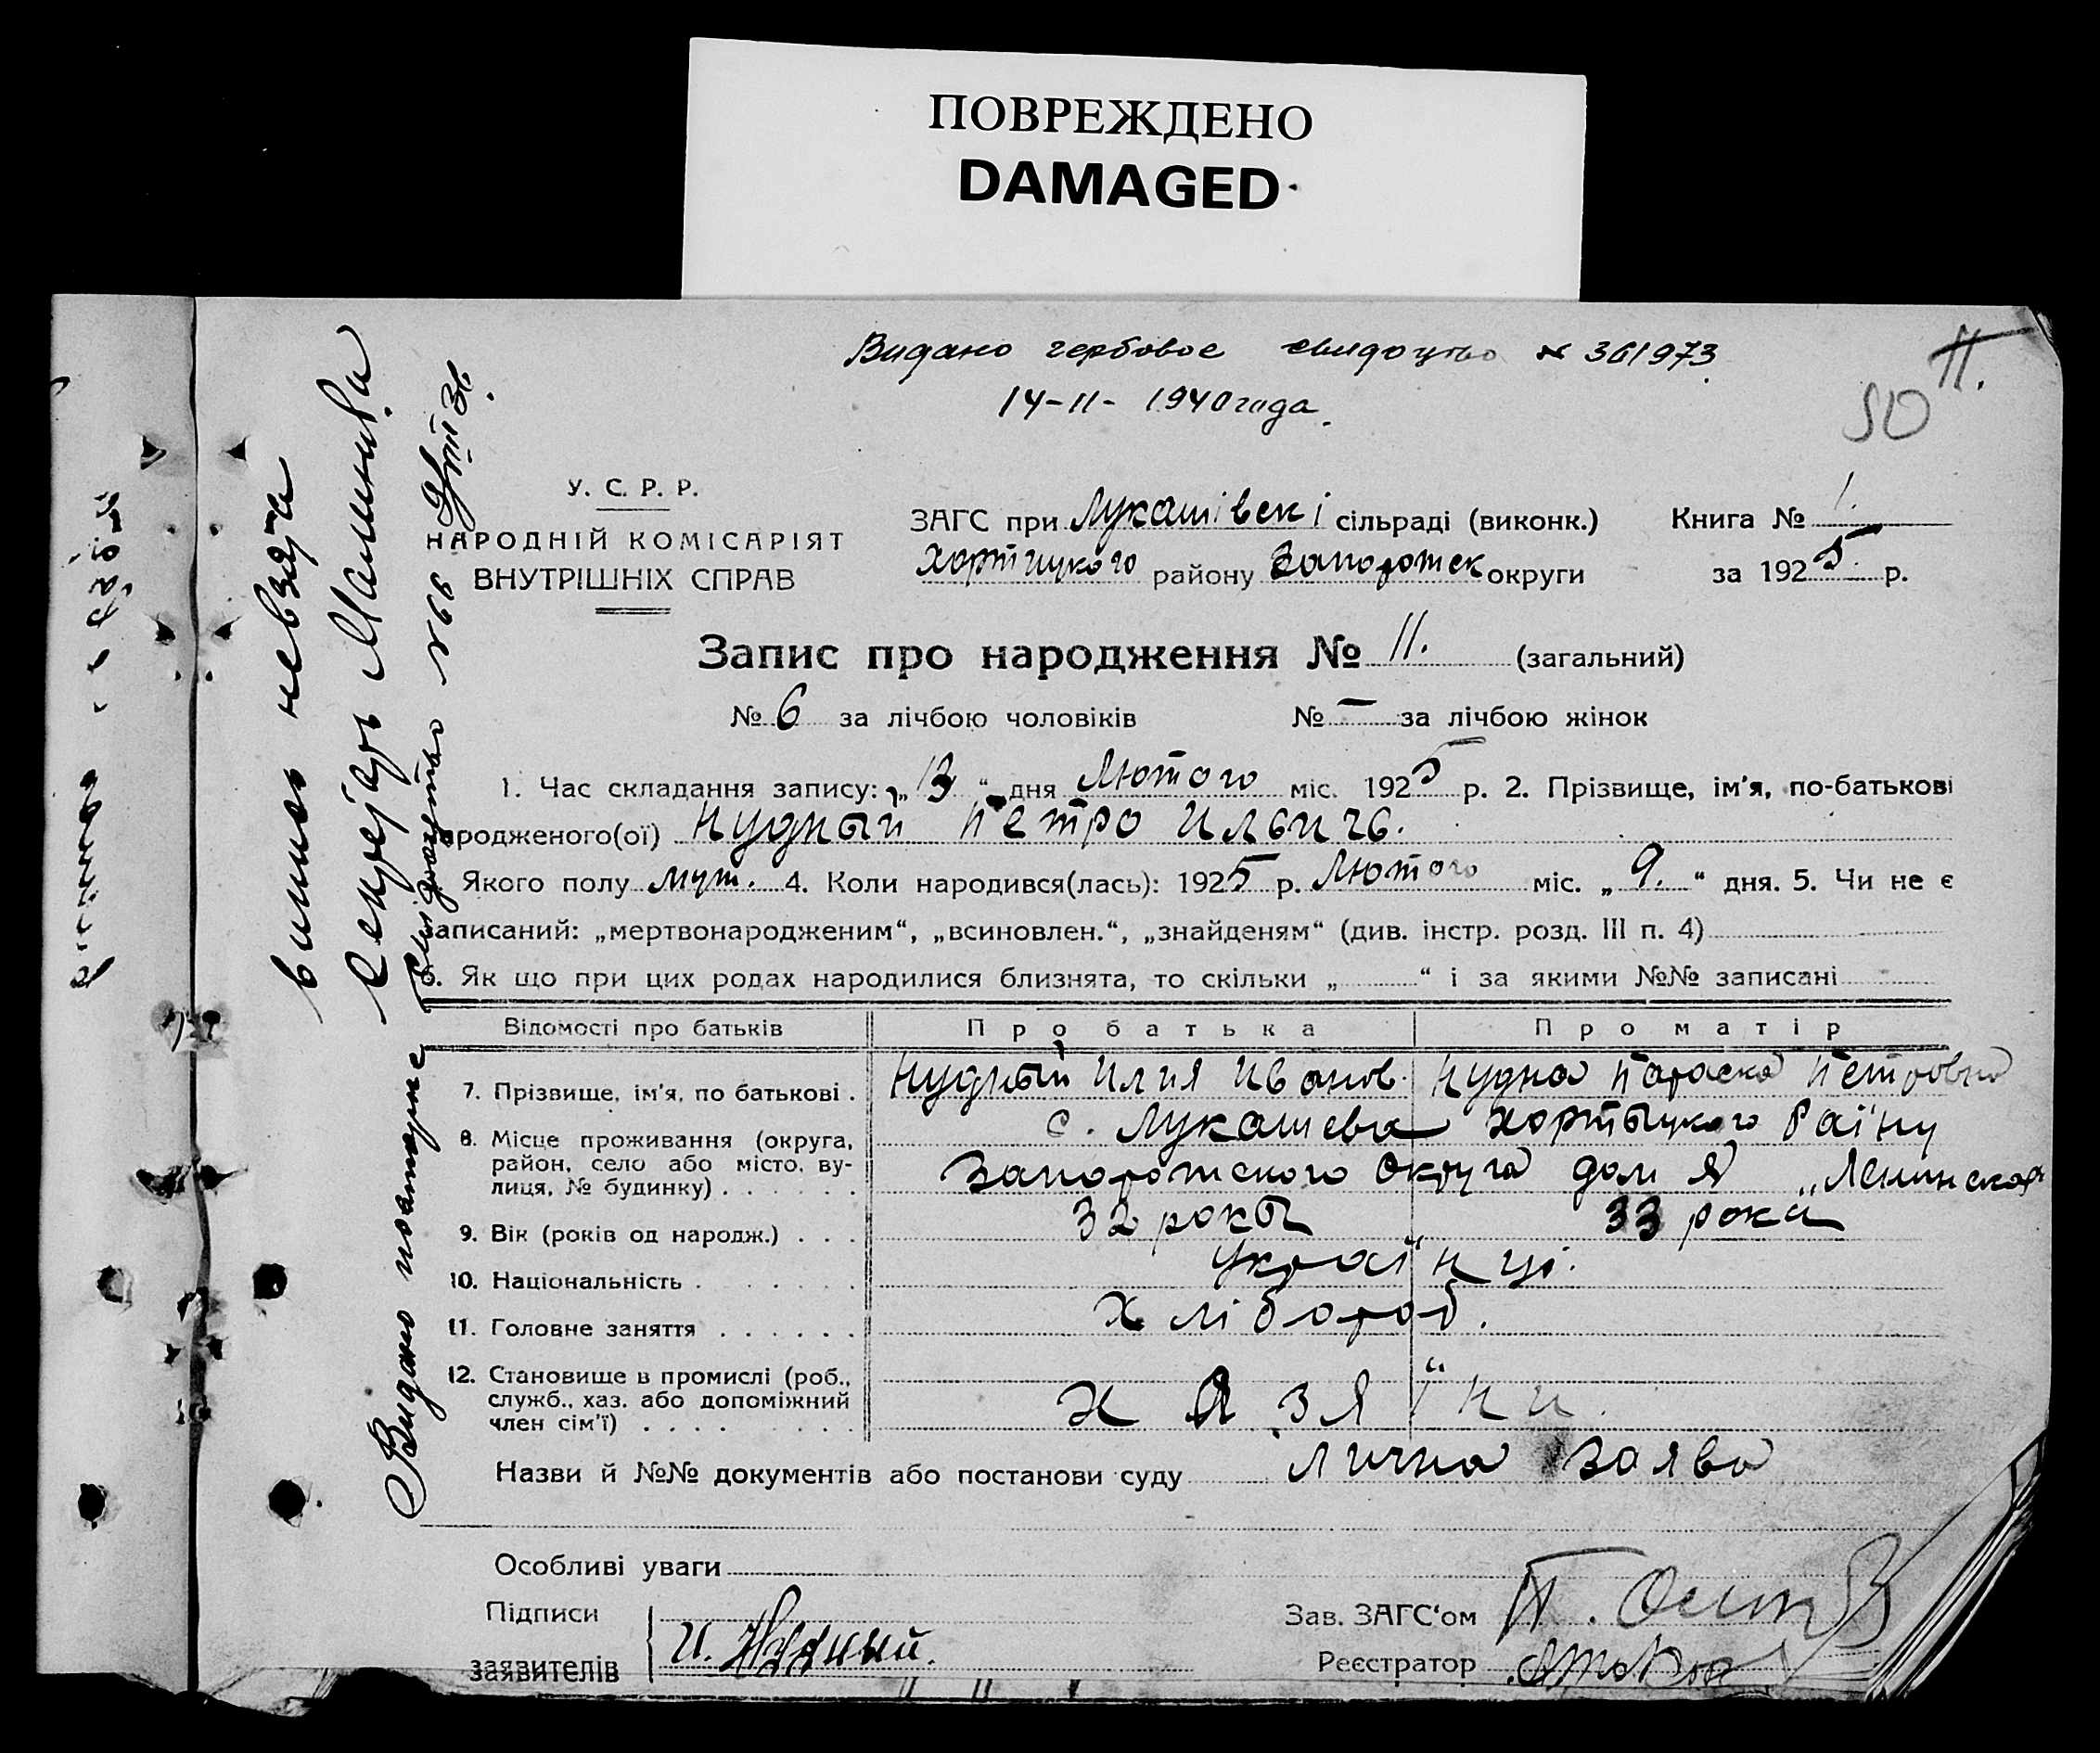 ПОВРЕЖДЕНО
DAMAGED
Видано гербовое свидоцтво № 361973
14-11- 1940 года.
11.
50
У. С. Р. Р.
НАРОДНІЙ КОМІСАРІЯТ
ВНУТРІШНІХ СПРАВ
ЗАГС при Лукашівскі сільраді (виконк.)
Хортицкого району Запорожск округи
Книга № 1.
за 1925 р.
Запис про народження № 11. (загальний)
№ 6 за лічбою чоловіків № — за лічбою жінок
1. Час складання запису: „13“ дня Лютого міс. 1925 р. 2. Прізвище, ім'я, по-батькові
народженого(ої) Нудный Петро Ильичь.
Якого полу муж. 4. Коли народився(лась): 1925 р. Лютого міс. „9.“ дня. 5. Чи не є
записаний: „мертвонародженим“, „всиновлен.“, „знайденям“ (див. інстр. розд. III п. 4)
6. Як що при цих родах народилися близнята, то скільки „ “ і за якими №№ записані
Відомості про батьків
Про батька
Про матір
7. Прізвище, ім'я, по батькові .
Нудный Илия Иванов.
Нудна Параска Петровна
8. Місце проживання (округа,
район, село або місто, ву-
лиця, № будинку) . . . . . .
с. Лукашева Хортыцкого Раіну
Запорожского Округа дом № „Ленинская
9. Вік (років од народж.) . . .
32 рокы
33 роки
10. Національність . . . . .
Украінці.
11. Головне заняття . . . . . .
Хлібороб.
12. Становище в промислі (роб.,
служб., хаз. або допоміжний
член сім'ї) . . . . . . . .
Хазяїни.
Назви й №№ документів або постанови суду Лична заява
Особливі уваги
Підписи
заявителів
И. Нудный.
Зав. ЗАГС'ом
Реєстратор
Видано повторне свидоцтво № 66